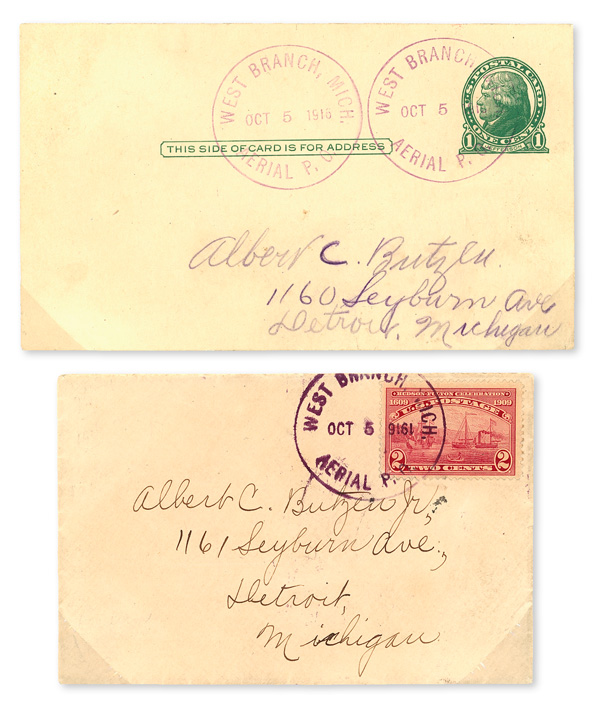 WEST BRANCH, MICH.
OCT 5 1916
AERIAL P. O.
WEST BRANCH, MICH.
OCT 5
AERIAL P. O.
U.S. POSTAL CARD
1 ONE CENT 1
JEFFERSON
THIS SIDE OF CARD IS FOR ADDRESS
Albert C. Butzen.
1160 Seyburn Ave
Detroit, Michigan
WEST BRANCH, MICH.
OCT 5 1916
AERIAL P.
HUDSON-FULTON CELEBRATION
1609 1909
U.S. POSTAGE
2 TWO CENTS 2
Albert C. Butzen Jr,
1161 Seyburn Ave.,
Detroit,
Michigan